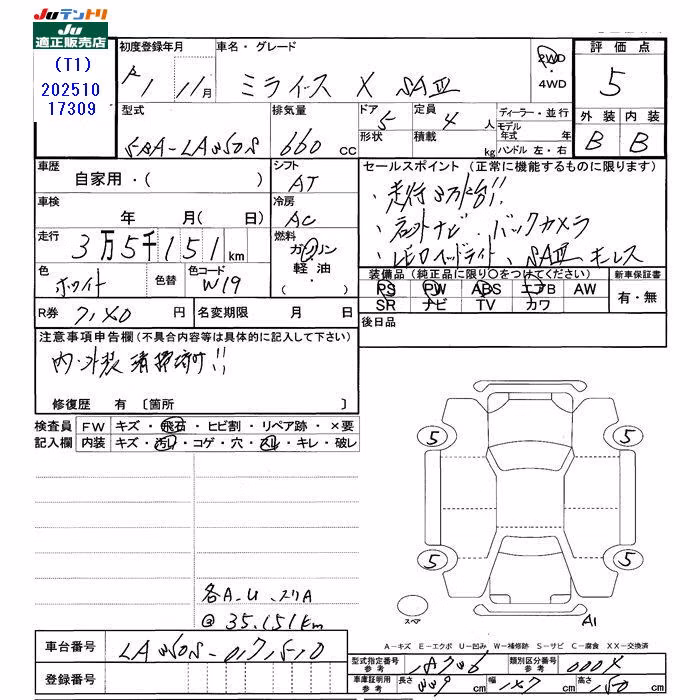 Juテントリ
Ju
適正販売店
(T1)
202510
17309
初度登録年月
1 11月
車名・グレード
ミライース X SAⅢ
2WD
4WD
評価点
5
外装 内装
B B
型式
5BA-LA350S
排気量
660 cc
ドア 5
形状
定員 4 人
積載 kg
ディーラー・並行
モデル年式 年
ハンドル 左・右
車歴
自家用・( )
シフト
AT
車検
年 月( 日)
冷房
AC
走行
3万5千151km
燃料
ガソリン
軽油
( ・ )
色
ホワイト
色替
色コード
W19
R券 円
名変期限 月 日
セールスポイント(正常に機能するものに限ります)
・走行3万km台!!
・ネットナビ・バックカメラ
・LEDヘッドライト、SAⅢ キーレス
装備品(純正品に限り〇をつけてください)
PS PW ABS エアB AW
SR ナビ TV カワ
新車保証書
有・無
後日品
注意事項申告欄(不具合内容等は具体的に記入して下さい)
内・外装 清掃済み!!
修復歴 有 〔箇所 〕
検査員記入欄
FW キズ・飛石・ヒビ割・リペア跡・×要
内装 キズ・汚れ・コゲ・穴・スレ・キレ・破レ
各A.U.スリA
@ 35.151km
5
5
5
5
スペア
A1
A-キズ E-エクボ U-凹み W-補修跡 S-サビ C-腐食 XX-交換済
車台番号
登録番号
型式指定番号 参考
類別区分番号 参考
車庫証明用 参考
長さ cm
幅 cm
高さ 150 cm